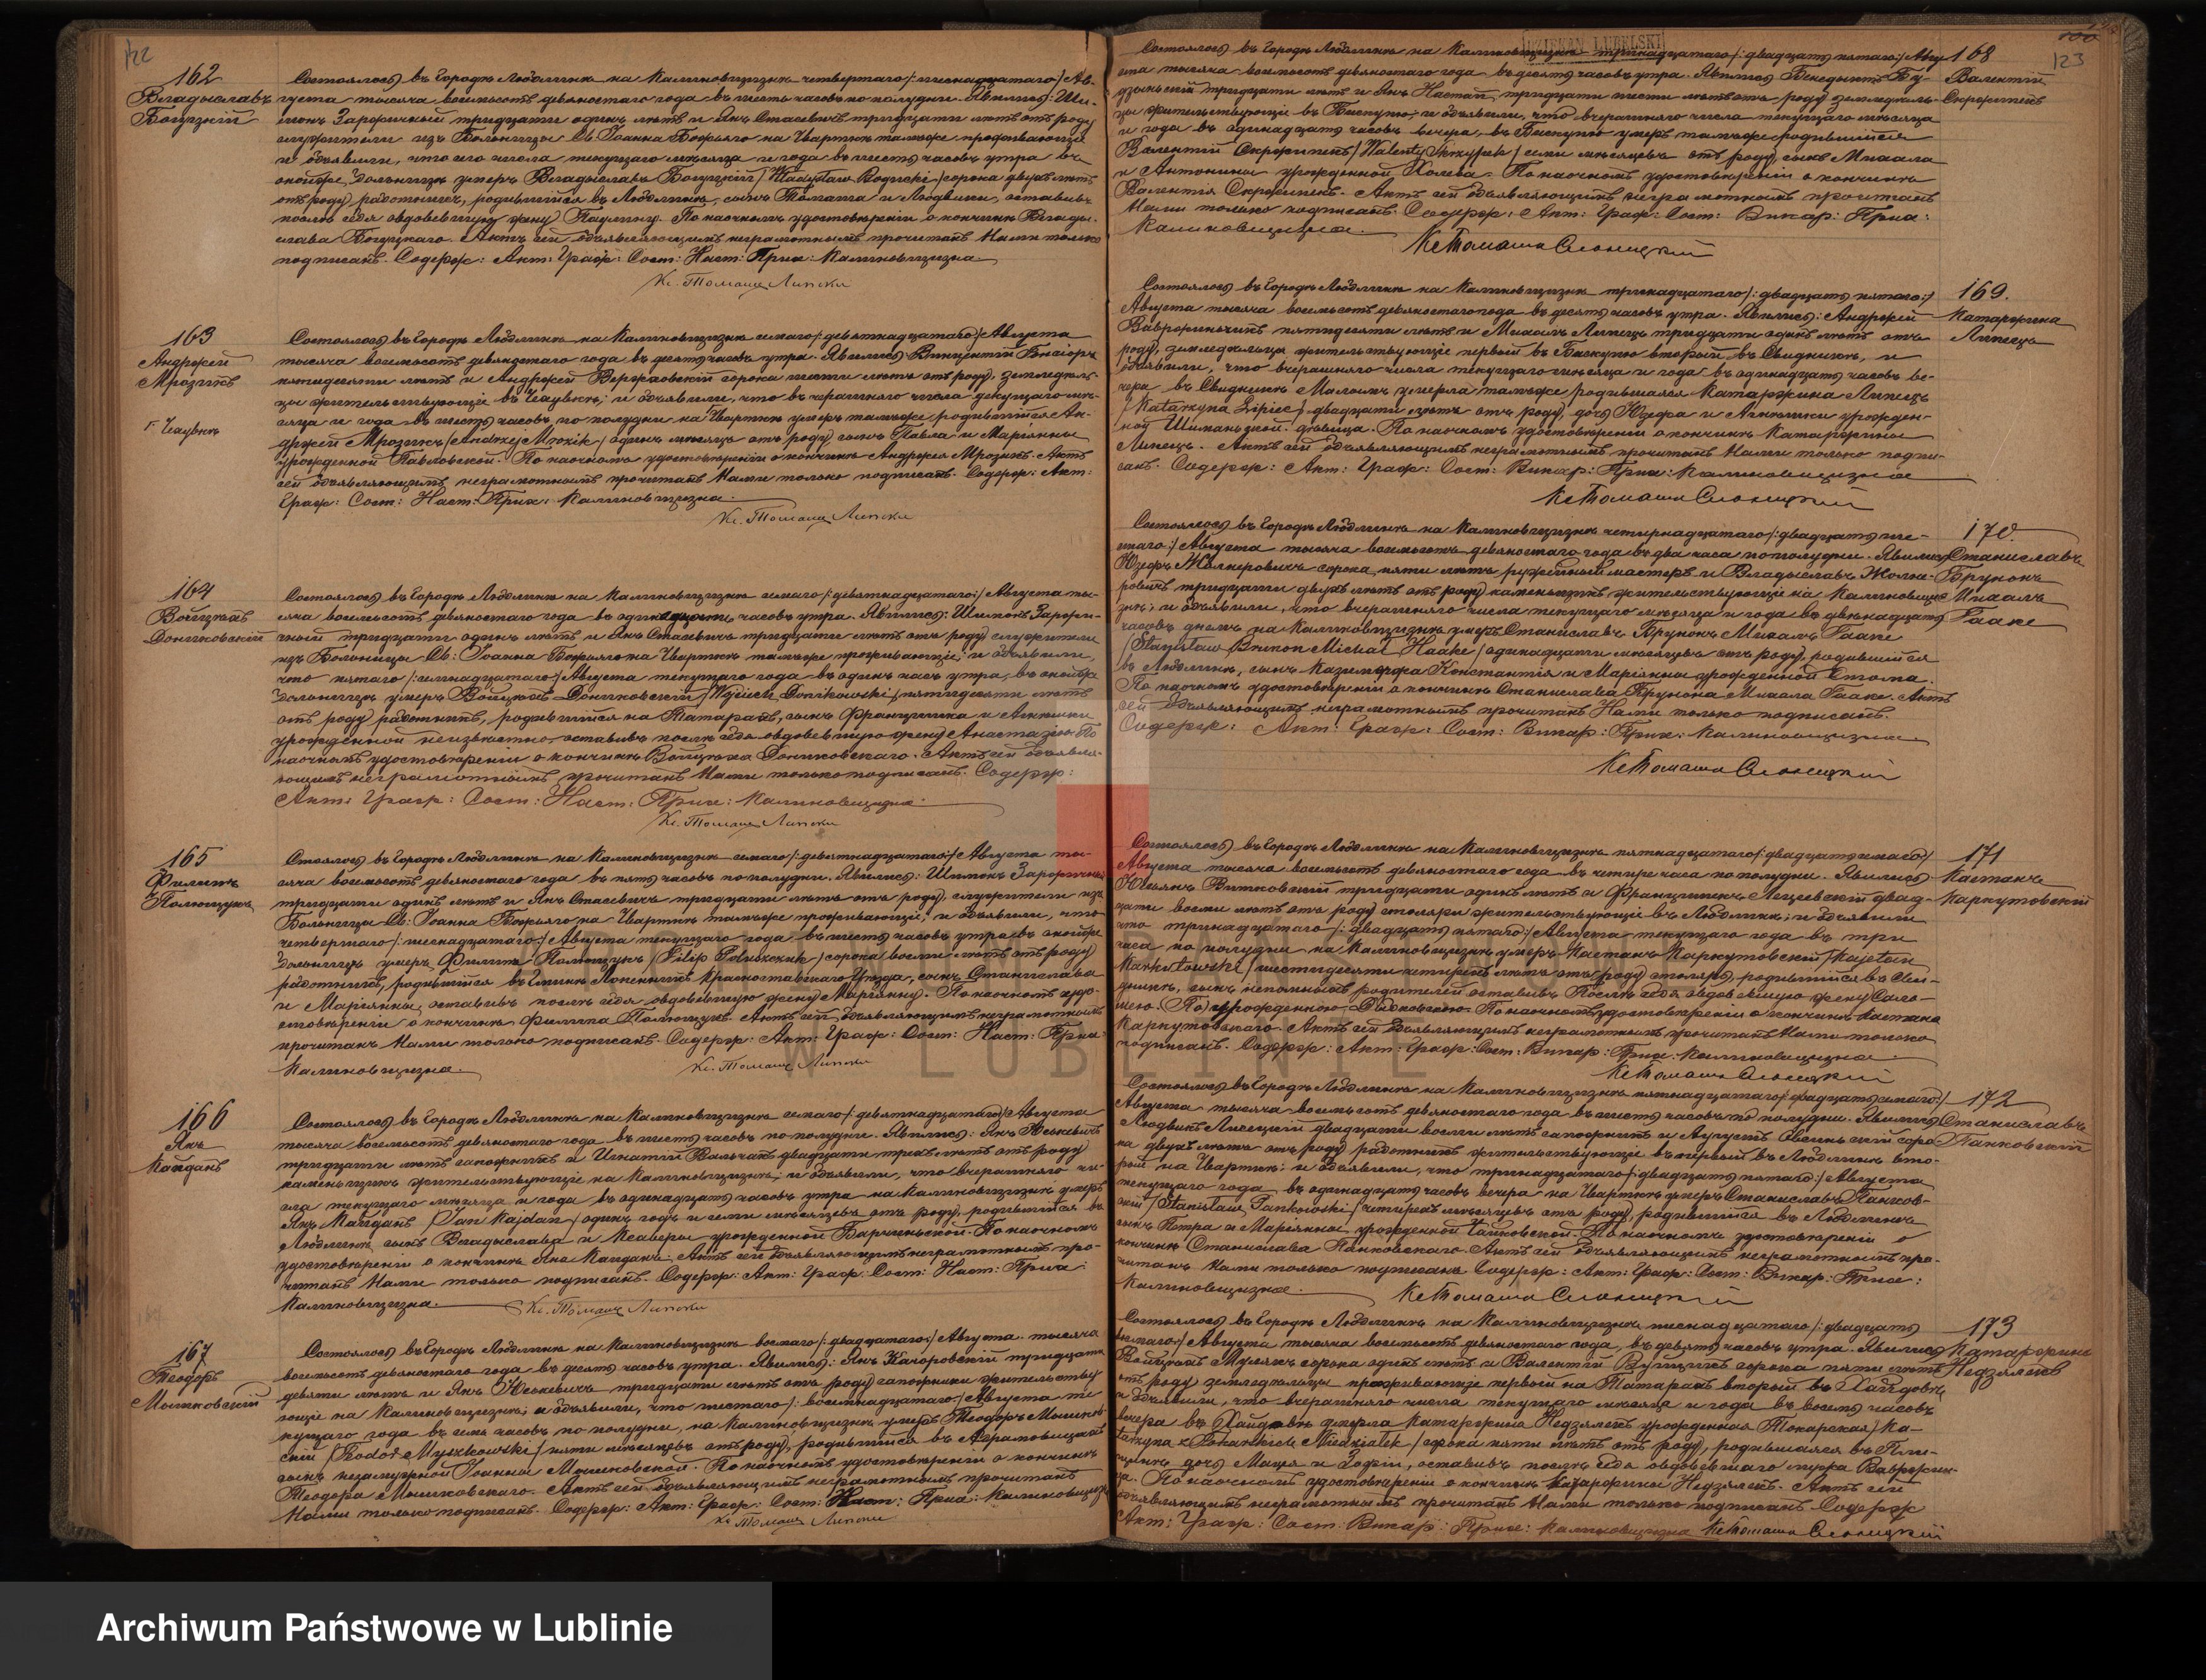 122
162
Владыславъ
Богуцкій
Состоялось въ Городѣ Люблинѣ на Калиновщизнѣ четвертаго/:шестнадцатаго:/ Ав-
густа тысяча восемьсотъ девяностаго года въ шесть часовъ по полудни. Явились: Ши-
монъ тридцати одинъ лѣтъ и Янъ Стасевичъ тридцати лѣтъ отъ роду
служители изъ Больницы Св. Іоанна Божьяго на Чварткѣ тамъже проживающіе
и объявили, что его числа текущаго мѣсяца и года въ шесть часовъ утра въ
больницѣ умеръ Владыславъ Богуцкій /Władysław Bogucki/ сорока двухъ лѣтъ
отъ роду работникъ, родившійся въ Люблинѣ, сынъ Томаша и Людвики, оставивъ
послѣ себя овдовевшую жену Паулину. По наочномъ удостовѣреніи о кончинѣ Влады-
слава Богуцкаго. Актъ сей объявляющимъ неграмотнымъ прочитанъ Нами только
подписанъ. Содерж: Акт: Граж: Сост: Наст: Прих: Калиновщизна.
Кс. Томашъ Липски
163
Андржей
Мрозикъ
Состоялось въ Городѣ Люблинѣ на Калиновщизнѣ седмаго/:девятнадцатаго:/ Августа
тысяча восемьсотъ девяностаго года въ десять часовъ утра. Явились Винцентій
пятидесяти лѣтъ и Андржей сорока шести лѣтъ отъ роду, земледѣль-
цы жительствующіе въ и объявили, что вчерашняго числа текущаго мѣ-
сяца и года въ шесть часовъ по полудни на Чварткѣ умеръ тамъже родившійся Ан-
држей Мрозикъ /Andrzej Mrozik/ одинъ мѣсяцъ отъ роду, сынъ Павла и Маріанны
урожденной Павловской. По наочномъ удостовѣреніи о кончинѣ Андржея Мрозикъ. Актъ
сей объявляющимъ неграмотнымъ прочитанъ Нами только подписанъ. Содерж: Акт:
Граж: Сост: Наст: Прих: Калиновщизна.
Кс. Томашъ Липски
164
Войцехъ
Дониковскій
Состоялось въ Городѣ Люблинѣ на Калиновщизнѣ седмаго/:девятнадцатаго:/ Августа ты-
сяча восемьсотъ девяностаго года въ часовъ утра. Явились: Шимонъ
тридцати одинъ лѣтъ и Янъ Стасевичъ тридцати лѣтъ отъ роду служители
изъ Больницы Св: Іоанна Божьяго на Чварткѣ тамъже проживающіе, и объявили,
что пятаго/:семнадцатаго:/ Августа текущаго года въ одинъ часъ утра, въ
больницѣ умеръ Войцехъ Дониковскій /Wojciech Donikowski/ пятидесяти лѣтъ
отъ роду работникъ, родившійся на Татарахъ, сынъ Францишка и Агнешки
урожденной неизвѣстно, оставивъ послѣ себя овдовевшую жену Анастазію. По
наочномъ удостовѣреніи о кончинѣ Войцеха Дониковскаго. Актъ сей объявля-
ющимъ неграмотнымъ прочитанъ Нами только подписанъ. Содерж:
Акт: Граж: Сост: Наст: Прих: Калиновщизна.
Кс. Томашъ Липски
165
Филипъ
Состоялось въ Городѣ Люблинѣ на Калиновщизнѣ седмаго/:девятнадцатаго:/ Августа ты-
сяча восемьсотъ девяностаго года въ пять часовъ по полудни. Явились: Шимонъ
тридцати одинъ лѣтъ и Янъ Стасевичъ тридцати лѣтъ отъ роду, служители изъ
Больницы Св: Іоанна Божьяго на Чварткѣ тамъже проживающіе, и объявили, что
четвертаго/:шестнадцатаго:/ Августа текущаго года въ шесть часовъ утра въ
больницѣ умеръ Филипъ /Filip сорока восьми лѣтъ отъ роду
работникъ, родившійся въ Красноставскаго Уѣзда, сынъ Станислава
и Маріанны, оставивъ послѣ себя овдовевшую жену Маріанну. По наочномъ удо-
стовѣреніи о кончинѣ Филипа Актъ сей объявляющимъ неграмотнымъ
прочитанъ Нами только подписанъ. Содерж: Акт: Граж: Сост: Наст: Прих:
Калиновщизна.
Кс. Томашъ Липски
166
Янъ
Кайданъ
Состоялось въ Городѣ Люблинѣ на Калиновщизнѣ седмаго/:девятнадцатаго:/ Августа
тысяча восемьсотъ девяностаго года въ шесть часовъ по полудни. Явились: Янъ Юськевичъ
тридцати лѣтъ сапожникъ и Игнатій двадцати трехъ лѣтъ отъ роду
каменьщикъ жительствующіе на Калиновщизнѣ, и объявили, что вчерашняго чи-
сла текущаго мѣсяца и года въ одинадцать часовъ утра на Калиновщизнѣ умеръ
Янъ Кайданъ /Jan Kajdan/ одинъ годъ и семи мѣсяцевъ отъ роду, родившійся въ
Люблинѣ, сынъ Владыслава и Ксаверы урожденной По наочномъ
удостовѣреніи о кончинѣ Яна Кайдана. Актъ сей объявляющимъ неграмотнымъ про-
читанъ Нами только подписанъ. Содерж: Акт: Граж: Сост: Наст: Прих:
Калиновщизна.
Кс. Томашъ Липски
167
Теодоръ
Мышковскій
Состоялось въ Городѣ Люблинѣ на Калиновщизнѣ восмаго/:двадцатаго:/ Августа тысяча
восемьсотъ девяностаго года въ десять часовъ утра. Явились: Янъ Качоровскій тридцати
девяти лѣтъ и Янъ Юськевичъ тридцати лѣтъ отъ роду сапожники жительству-
ющіе на Калиновщизнѣ, и объявили, что шестаго/:восемнадцатаго:/ Августа те-
кущаго года въ семь часовъ по полудни, на Калиновщизнѣ умеръ Теодоръ Мышков-
скій /Teodor Myszkowski/ пяти мѣсяцевъ отъ роду, родившійся въ
сынъ незамужной Іоанны Мышковской. По наочномъ удостовѣреніи о кончинѣ
Теодора Мышковскаго. Актъ сей объявляющимъ неграмотнымъ прочитанъ
Нами только подписанъ. Содерж: Акт: Граж: Сост: Наст: Прих: Калиновщизна
Кс. Томашъ Липски
DZIEKAN LUBELSKI
123
168
Валентій
Скржипекъ
Состоялось въ Городѣ Люблинѣ на Калиновщизнѣ тринадцатаго/:двадцать пятаго:/ Авгу-
ста тысяча восемьсотъ девяностаго года въ десять часовъ утра. Явились Бенедыктъ
тридцати лѣтъ и Янъ тридцати шести лѣтъ отъ роду земледѣль-
цы жительствующіе въ Бискупіе, и объявили, что вчерашняго числа текущаго мѣсяца
и года въ одинадцать часовъ вечера, въ Бискупіе умеръ тамъже родившійся
Валентій Скржипекъ /Walenty Skrzypek/ семи мѣсяцевъ отъ роду, сынъ Михала
и Антонины урожденной Холева. По наочномъ удостовѣреніи о кончинѣ
Валентія Скржипекъ. Актъ сей объявляющимъ неграмотнымъ прочитанъ
Нами только подписанъ. Содерж: Акт: Граж: Сост: Викар: Прих:
Калиновщизна.
Кс Томашъ Слоницкій
169.
Катаржина
Липецъ
Состоялось въ Городѣ Люблинѣ на Калиновщизнѣ тринадцатаго/:двадцать пятаго:/
Августа тысяча восемьсотъ девяностаго года въ десять часовъ утра. Явились: Андржей
пятидесяти лѣтъ и Михалъ Липецъ тридцати одинъ лѣтъ отъ
роду, земледѣльцы жительствующіе первый въ Бискупіе второй въ Свидникѣ, и
объявили, что вчерашняго числа текущаго мѣсяца и года въ одинадцать часовъ ве-
чера въ Свидникѣ Маломъ умерла тамъже родившаяся Катаржина Липецъ
/Katarzyna Lipiec/ двадцати лѣтъ отъ роду, дочь Юзефа и Агнешки урожден-
ной девица. По наочномъ удостовѣреніи о кончинѣ Катаржины
Липецъ. Актъ сей объявляющимъ неграмотнымъ прочитанъ Нами только подпи-
санъ. Содерж: Акт: Граж: Сост: Викар: Прих: Калиновщизна
Кс Томашъ Слоницкій
170.
Станиславъ
Брунонъ
Михалъ
Гааке
Состоялось въ Городѣ Люблинѣ на Калиновщизнѣ четырнадцатаго/:двадцать ше-
стаго:/ Августа тысяча восемьсотъ девяностаго года въ два часа по полудни. Явились
Юзефъ сорока пяти лѣтъ ружейный мастеръ и Владыславъ
тридцати двухъ лѣтъ отъ роду каменьщикъ жительствующіе на Калиновщи-
знѣ, и объявили, что вчерашняго числа текущаго мѣсяца и года въ двѣнадцать
часовъ днемъ на Калиновщизнѣ умеръ Станиславъ Брунонъ Михалъ Гааке
/Stanisław Brunon Michał Haake/ одинадцати мѣсяцевъ отъ роду, родившійся
въ Люблинѣ, сынъ Казимержа Константія и Маріанны урожденной
По наочномъ удостовѣреніи о кончинѣ Станислава Брунона Михала Гааке. Актъ
сей объявляющимъ неграмотнымъ прочитанъ Нами только подписанъ.
Содерж: Акт: Граж: Сост: Викар: Прих: Калиновщизна.
Кс Томашъ Слоницкій
171
Каетанъ
Каркутовскій
Состоялось въ Городѣ Люблинѣ на Калиновщизнѣ пятнадцатаго/:двадцать седмаго:/
Августа тысяча восемьсотъ девяностаго года въ четыре часа по полудни. Явились
Витковскій тридцати одинъ лѣтъ и Францишекъ двад-
цати восьми лѣтъ отъ роду столяры жительствующіе въ Люблинѣ, и объявили
что тринадцатаго/:двадцать пятаго:/ Августа текущаго года въ три
часа по полудни на Калиновщизнѣ умеръ Каетанъ Каркутовскій /Kajetan
Karkutowski/ шестидесяти четырехъ лѣтъ отъ роду столяръ, родившійся въ
сынъ родителей оставивъ послѣ себя овдовевшую жену
урожденною По наочномъ удостовѣреніи о кончинѣ Каетана
Каркутовскаго. Актъ сей объявляющимъ неграмотнымъ прочитанъ Нами только
подписанъ. Содерж: Акт: Граж: Сост: Викар: Прих: Калиновщизна.
Кс Томашъ Слоницкій
172
Станиславъ
Панковскій
Состоялось въ Городѣ Люблинѣ на Калиновщизнѣ пятнадцатаго/:двадцать седмаго:/
Августа тысяча восемьсотъ девяностаго года въ шесть часовъ по полудни. Явились
Людвикъ двадцати восьми лѣтъ сапожникъ и Августъ соро-
ка двухъ лѣтъ отъ роду работникъ жительствующіе первый въ Люблинѣ вто-
рой на Чварткѣ, и объявили, что тринадцатаго/:двадцать пятаго:/ Августа
текущаго года въ одинадцать часовъ вечера на Чварткѣ умеръ Станиславъ Панков-
скій /Stanisław Pankowski/ четырехъ мѣсяцевъ отъ роду, родившійся въ Люблинѣ
сынъ Петра и Маріанны урожденной По наочномъ удостовѣреніи о
кончинѣ Станислава Панковскаго. Актъ сей объявляющимъ неграмотнымъ про-
читанъ Нами только подписанъ. Содерж: Акт: Граж: Сост: Викар: Прих:
Калиновщизна.
Кс Томашъ Слоницкій
173
Катаржина
Недзялекъ
Состоялось въ Городѣ Люблинѣ на Калиновщизнѣ шестнадцатаго/:двадцать
восмаго:/ Августа тысяча восемьсотъ девяностаго года, въ девять часовъ утра. Явились
Войцехъ сорока одинъ лѣтъ и Валентій сорока пяти лѣтъ
отъ роду земледѣльцы проживающіе первый на Татарахъ второй въ Хайдовѣ,
и объявили, что вчерашняго числа текущаго мѣсяца и года въ восемь часовъ
вечера въ Хайдовѣ умерла Катаржина Недзялекъ урожденная Токарская /Ka-
tarzyna z Tokarskich Niedziałek/ сорока пяти лѣтъ отъ роду, родившаяся въ
дочь Мацея и Зофіи, оставивъ послѣ себя овдовевшаго мужа Вавржин-
ца. По наочномъ удостовѣреніи о кончинѣ Катаржины Недзялекъ. Актъ сей
объявляющимъ неграмотнымъ прочитанъ Нами только подписанъ. Содерж
Акт: Граж: Сост: Викар: Прих: Калиновщизна Кс Томашъ Слоницкій
W LUBLINIE
Archiwum Państwowe w Lublinie